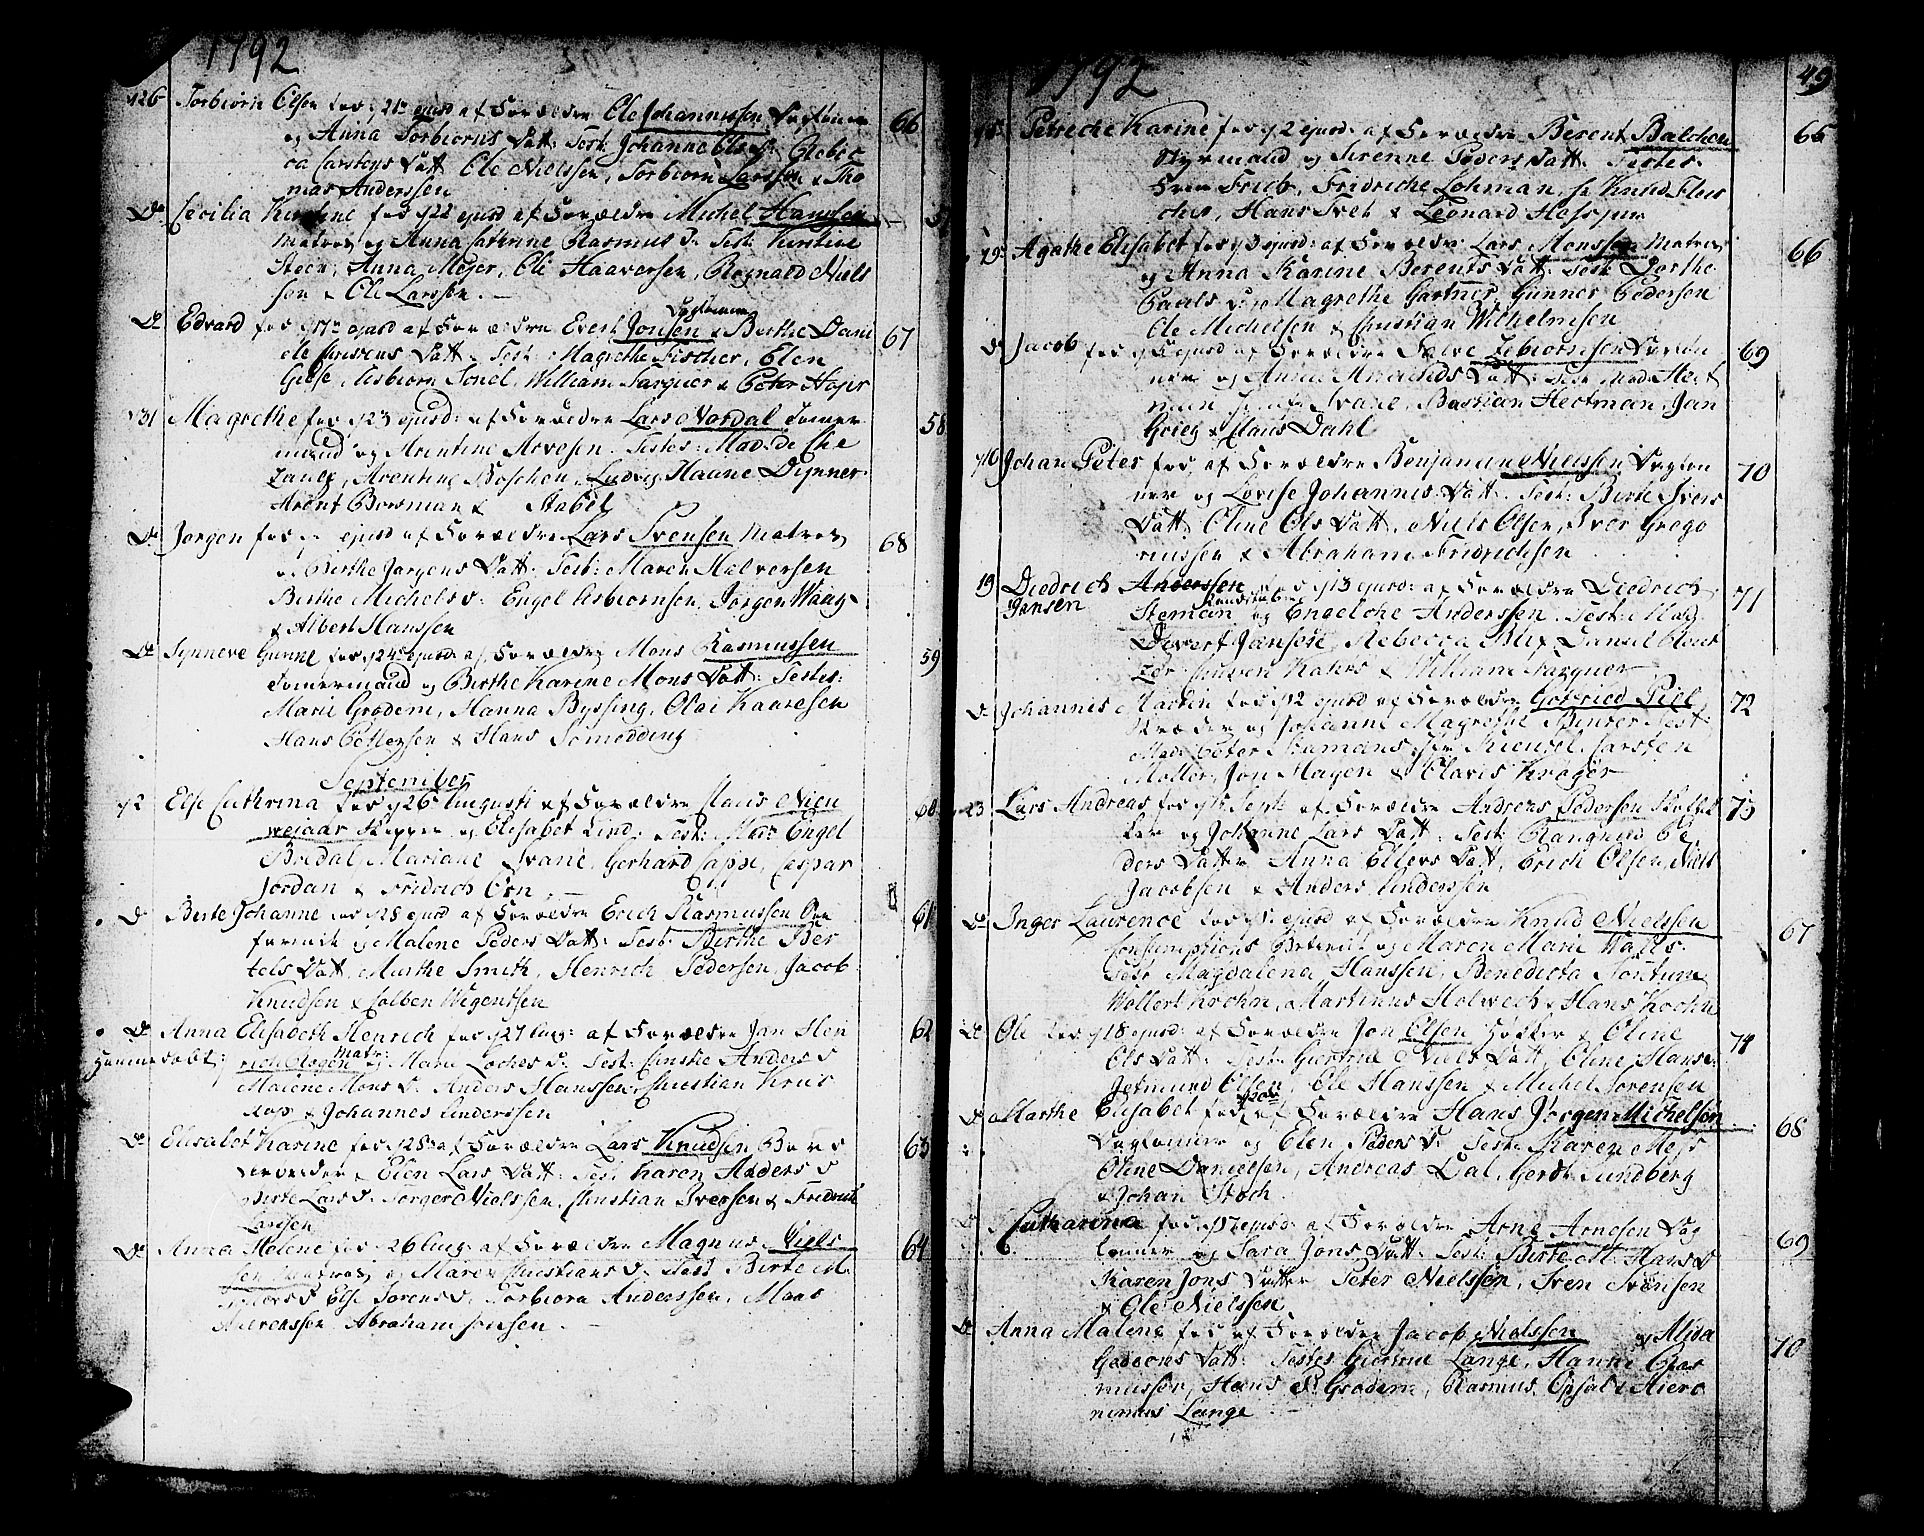 1792
d 26 Torbiørn Olsen fød d 21 ejusd af Forældre Ole Johannessen Dagløner 66
og Anna Torbiørns Datt: Test: Johanne Ols D: Rebec
ca Carstens Datt Ole Nielssen, Torbiørn Larssen & Tho
mas Anderssen
Do Cecilia Kirstine fød d 22 ejusd af Forældre Michel Hanssen
Matros og Anna Cathrine Rasmus D. Test: Kirstine
Steen, Anna Meyer, Ole Haaversen, Regnald Niels
sen & Ole Larssen.
Do Edvard fød d 17 ejusd af Forældre Evert Jonsen Dagløner & Berthe Dani 67
els Datt. Test: Magrethe Fischer, Elen
Giese, Asbiørn Sonel, William Farquer & Peter Højer
d 31 Magrethe fød d 23 ejusd: af Forældre Lars Nordal Tømer 58
mand og Arentine Arvesen. Testes: Mad:
Lange, Arentine Boschen, Ludvig Hanne Dypner
Arent Bowman & Stabel
Do Jørgen fød ejusd af Forældre Lars Svensen Matros 68
og Berthe Jørgens Datt. Test: Maren Halversen
Birthe Michels D. Engel Asbiørnsen, Jørgen Waag
& Albert Hanssen
Do Synneve Gunne fød d 24 ejusd af Forældre Mons Rasmussen 59
Tømermand og Birthe Karine Mons Datt: Testes:
Marie Grødem, Hanna Byssing, Olai Kaaresen
Hans Pettersen & Hans Tomedding
September
d 2 Else Cathrina fød d 26 Augusti af Forældre Claus Nien 60
wejaar Skipper og Elisabet Lind. Test: Mad: Engel
Bredal, Mariane Svane, Gerhard Cappe, Caspar
Jordan & Fridrich Orn
Do Birte Johanne fød d 28 ejusd af Forældre Erich Rasmussen 61
og Malene Peders Datt: Test: Birthe Ber
tels Datt, Marthe Smith, Henrich Pedersen, Jacob
Knudsen & Colben Wigentsen
Do Anna Elisabeth Henrich fød d 27 Aug: af Forældre Jan Hen 62
Hiemmedøbt: rich Rogen Matr: og Marie Loches D. Test: Anders D
Malene Mons D. Anders Hanssen, Christian Krus
kop & Johannes Anderssen
Do Elisabet Karine fød d 28 af Forældre Lars Knudsen 63
Elen Lars Datt: Test: Karen Anders D
Birte Lars D. Jørgen Nielssen, Christian Iversen & Fridrich
Larssen
Do Anna Malene fød d 26 Aug: af Forældre Magnus Niels 64
sen Matros og Maren Christians D. Test: Birte M.
Else Sørens D. Torbiørn Anderssen, Mons
Abraham Jonsen
1792 49
Petriche Karine fød d 2 ejusd: af Forældre Berent Balchen 65
Styrmand og Serenne Peders Datt. Testes.
Frue Frieb, Fridriche Lohman, Hr Knud Fles
cher, Hans Tvet & Leonard Hesspen
d 9 Agathe Elisabet fød d 3 ejusd: af Forældre Lars Monssen Matros 66
og Anna Karine Berents Datt: Test: Dorthe
Pauls D. Magrethe Gartner, Gunner Pedersen
Ole Michelsen & Christian Wilhelmsen
Do Jacob fød d 5 ejusd af Forældre Salve Lebiørnsen Dagløn 69
ner og Anna Amunds Datt: Test: Mad: Hert
man, Svane, Bastian Hertman, Jan
Grieg & Claus Dahl
d 16 Johan Peter fød af Forældre Benjamin Nielssen Dagløn 70
ner og Lovise Johannes Datt. Test: Birte Ivers
Datt, Oline Ols Datt, Niels Olsen, Iver Grego
riussen & Abraham Fridrichsen
19 Diedrich Anderssen fød d 13 ejusd: af Forældre Diedrich 71
Jansen Stemann og Engelche Anderssen. Test: Mag.
Devert Jansøse, Rebecca Blix, Daniel
& William Farquer
Do Johannes Martin fød d 12 ejusd af Forældre Gotfried Piil 72
Skræder og Johanne Magrethe Benser. Test:
Mad: Peter Skamans, Carsten
Møller, Jon Magen & Claves Krøger
d 23 Lars Andreas fød d 15 Septr af Forældre Andreas Pedersen 73
og Johanne Lars Datt: Test: Rangnild Pe
ders Datt: Anna Ellers Datt, Erich Olsen, Niels
Jacobsen & Anders Anderssen
Do Inger Laurence fød ejusd af Forældre Knud Nielssen 67
Consumptions Betient og Maren Marie Walls.
Test: Magdalena Hanssen, Benedicta Fortun
Wollert Krohn, Martinus Holwech & Hans Krohn
Do Ole fød d 18 ejusd: af Forældre Jon Olsen Høcker & Oline 74
Ols Datt: Test: Giertrud Niels Datt, Oline Hans D.
Jetmund Olsen, Ole Hanssen & Michel Sørensen
Do Marthe Elisabet fød af Forældre Hans Jørgen Michelsen 68
Dagløner og Elen Peders D. Test: Karen Mejs
Oline Danielsen, Andreas Dal, Gerdt Sundberg
& Johan Stoch
Do Catharina fød d 17 ejusd: af Forældre Arne Arnesen Dag 69
lønner og Sara Jons Datt: Test: Birte M. Hans D
Karen Jons Datter Peter Nielssen, Sven Svensen
& Ole Nielssen
Do Anna Malene fød af Forældre Jacob Nielssen og Alida 70
Gedeons Datt: Testes Giertrue Lange, Hanne Ras
mussen, Hans Grødem, Rasmus Opsal & Hiero
nimus Lange